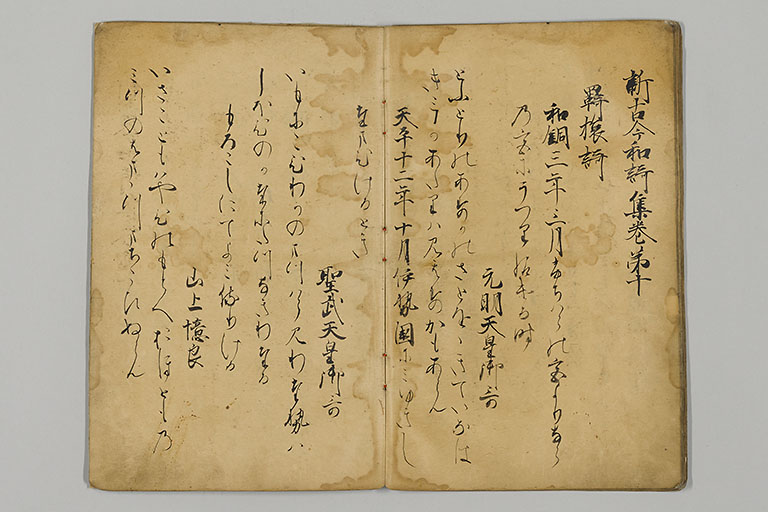 新古今和謌集巻第十
羇旅謌
和銅三年三月ふちはらの宮よりなら
の宮にうつり給ける時
元明天皇御哥
とふとりのあすかのさとをおきていなは
きみかあたりはみえすかもあらん
天平十二年十月伊勢国にみゆきし
たまひけるとき
聖武天皇御哥
いもにこひわかのまつはらみわたせは
しほひのかたにたつなきわたる
もろこしにてよみ侍ける
山上憶良
いさこともはやひのもとへおほともの
みつのはままつまちこひぬらん